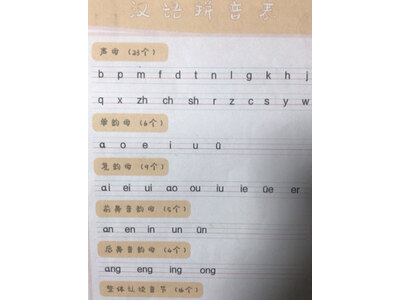 汉语拼音表
声母（23个）
b p m f d t n l g k h j
q x zh ch sh r z c s y w
单韵母（6个）
ɑ o e i u ü
复韵母（9个）
ɑi ei ui ɑo ou iu ie üe er
前鼻音韵母（5个）
ɑn en in un ün
后鼻音韵母（4个）
ɑng eng ing ong
整体认读音节（16个）